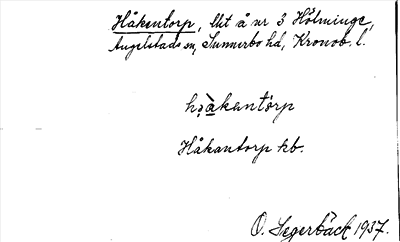 Håkantorp, lht å nr 3 Hölminge,
Angelstads sn, Sunnerbo hd, Kronob. l.
håkantórp
Håkantorp kb.
O. Segerbäck 1937.